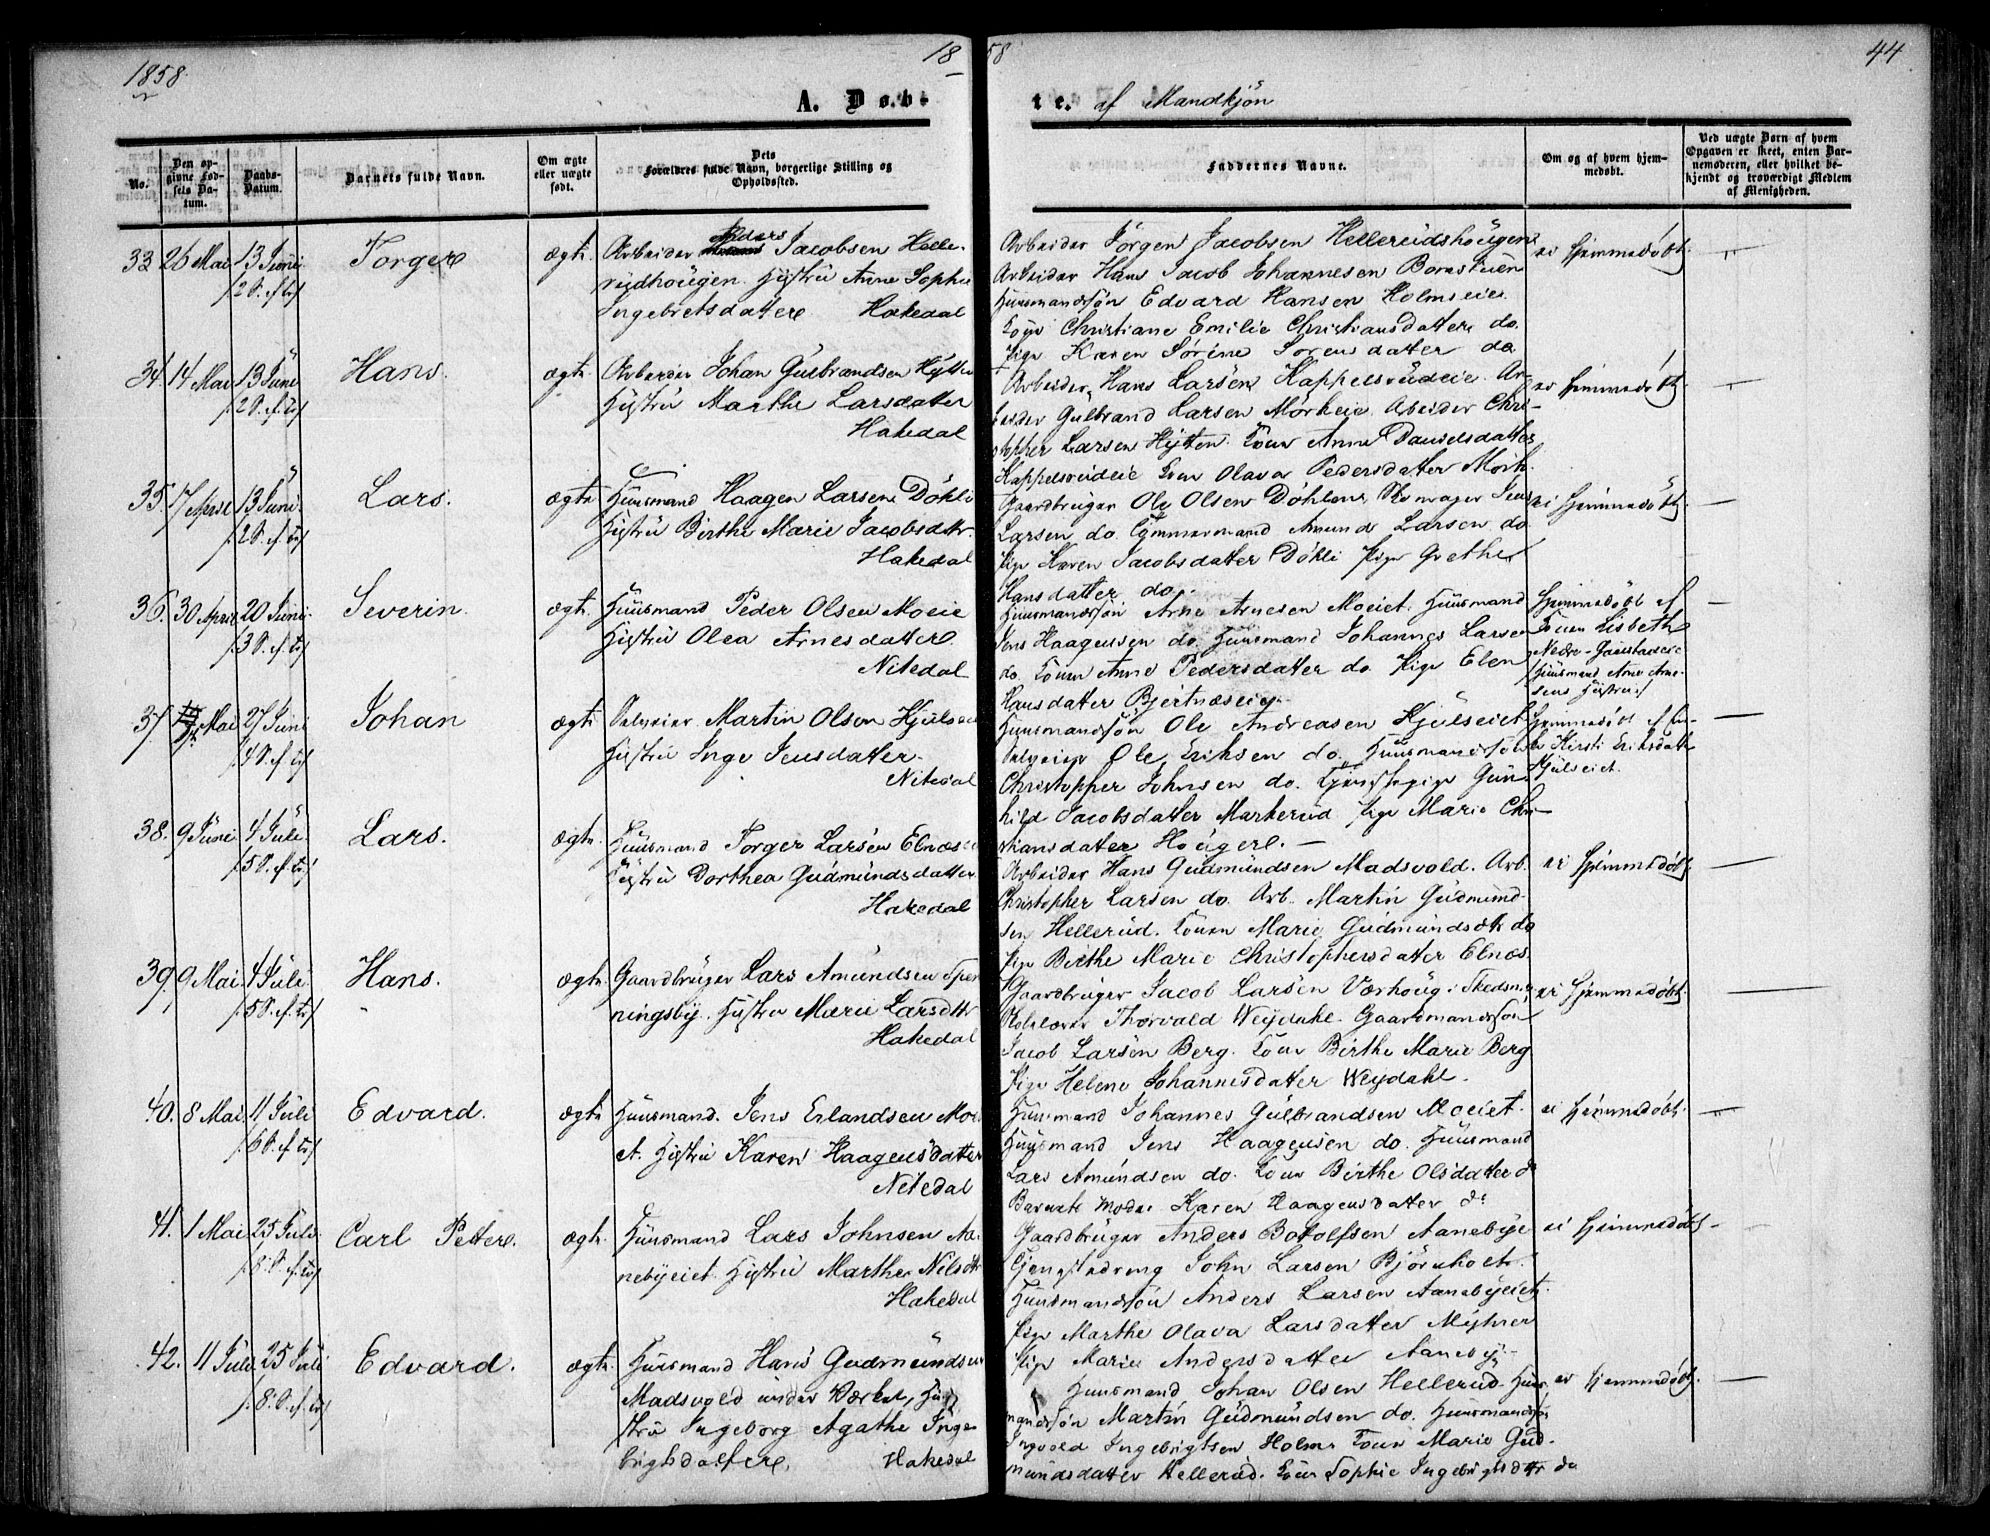 1858.
18
58
44
A. Døb-
te. af Mandkjön
No.
Den op-
givne Fød-
sels Da-
tum.
Daabs-
Datum.
Barnets fulde Navn.
Om ægte
eller uægte
født.
Dets
Forældres fulde Navn, borgerlige Stilling og
Opholdssted.
Faddernes Navne.
Om og af hvem hjem-
medøbt.
Ved uægte Børn af hvem
Opgaven er skeet, enten Bar-
nemoderen, eller hvilket be-
kjendt og troværdigt Medlem
af Menigheden.
33 26 Mai 13 Juni
2 S. ef. Tr.
Torger
ægte
Arbeider Anders Jacobsen Helle-
rudhougen. Hustru Anne Sophie
Ingebretsdatter Hakedal
Arbeider Jörgen Jacobsen Hellerudshougen
Arbeider Hans Jacob Johannesen
Huusmandssön Edvard Hansen Holmseie
Christiane Emilie Christiansdatter do.
Pige Karen Sörine Sorensdatter do
ei hjemmedöbt.
34 14 Mai 13 Juni
2 S. ef. Tr.
Hans.
ægte
Arbeider Johan Gulbrandsen Hytten
Hustru Marthe Larsdatter
Hakedal
Arbeider Hans Larsen Kappelsrudeie. Ar-
beider Gulbrand Larsen Mörkeie Arbeider Chri-
stopher Larsen Hytten. Kone Anne Danielsdatter
Kappelsrudeie Kone Olava Pedersdatter Mörk.
ei hjemmedöbt.
35. 17 April 13 Juni
2 S. ef. Tr.
Lars.
ægte
Huusmand Haagen Larsen Döhli
Hustru Birthe Marie Jacobsdttr.
Hakedal
Gaardbruger Ole Olsen Döhlen, Skomager Jens
Larsen do. Tömmermand Amund Larsen do
Pige Karen Jacobsdatter Döhli Pige Grethe
Hansdatter do.
ei hjemmedöbt.
36. 30 April 20 Juni
3 S. ef. Tr.
Severin.
ægte.
Huusmand Peder Olsen Moeie
Hustru Olea Arnesdatter.
Nitedal
Huusmandssön Arne Arnesen Moeiet. Huusmand
Jens Haagensen do. Huusmand Johannes Larsen
do. Kone Anne Pedersdatter do. Pige Elen
Hansdatter Bjertnæseie.
Hjemmedöbt af
Konen Lisbeth
Huusmand Arne Arne-
sens Hustru
37 Mai 27 Juni
4 S. ef. Tr.
Johan
ægte
Martin Olsen Hjulseie
Hustru Inge Jensdatter.
Nitedal
Huusmandssön Ole Andreasen Hjulseiet
Ole Eriksen do. Huusmandssön
Christopher Johnsen do. Tjenestepige Gun-
hild Jacobsdatter Markerud Pige Marie Chri-
stiansdatter Houger.
Hjemmedöbt af
Kirsti Eriksdatter
Hjulseiet.
38. 9 Juni 4 Juli
5 S. ef. Tr.
Lars.
ægte.
Huusmand Torger Larsen Elnæs
Hustru Dorthea Gudmundsdatter.
Hakedal
Arbeider Hans Gudmundsen Madsvold. Arb.
Christopher Larsen do. Arb. Martin Gudmund-
sen Hellerud. Konen Marie Gudmundsdtr do
Pige Birthe Marie Christophersdatter Elnæs.
ei hjemmedöbt.
39. 9 Mai 4 Juli
5 S. ef. Tr.
Hans.
ægte.
Gaardbruger Lars Amundsen Sper
ningsby. Hustru Marie Larsdttr
Hakedal
Gaardbruger Jacob Larsen Værhoug i Skedsmo
Thorvald Weydahl. Gaardmandssön
Jacob Larsen Berg. Kone Birthe Marie Berg
Pige Helene Johannesdatter Weydahl.
ei hjemmedöbt.
40. 8 Mai 11 Juli
6 S. ef. Tr.
Edvard.
ægte
Huusmand. Jens Erlandsen Moei-
et. Hustru Karen Haagensdatter
Nitedal
Huusmand Johannes Gulbrandsen Moeiet.
Huusmand Jens Haagensen do. Huusmand
Lars Amundsen do. Kone Birthe Olsdatter do
Barnets Moder Karen Haagensdatter do
ei hjemmedöbt.
41. 1 Mai 25 Juli
8 S. ef. Tr.
Carl Petter.
ægte.
Huusmand Lars Johnsen Aa-
nebyeiet. Hustru Marthe Nilsdtr
Hakedal
Gaardbruger Anders Botolfsen Aanebye
Tjenestedreng John Larsen Björnholt.
Huusmandssön Anders Larsen Aanebyeiet.
Pige Marthe Olava Larsdatter Myhrer
Pige Marie Andersdatter Aaneby.
ei hjemmedöbt.
42. 11 Juli 25 Juli
8. S. ef. Tr.
Edvard.
ægte.
Huusmand Hans Gudmundsen
Madsvold under Værket, Hu-
stru Ingeborg Agathe Inge-
brigtsdatter. Hakedal
Huusmand Johan Olsen Hellerud. Huus-
mandssön Martin Gudmundsen do. Huusmandssön
Ingvold Ingebrigtsen Holm. Kone Marie Gud-
mundsdatter Hellerud. Kone Sophie Ingebrigtsdtr do
ei hjemmedöbt.